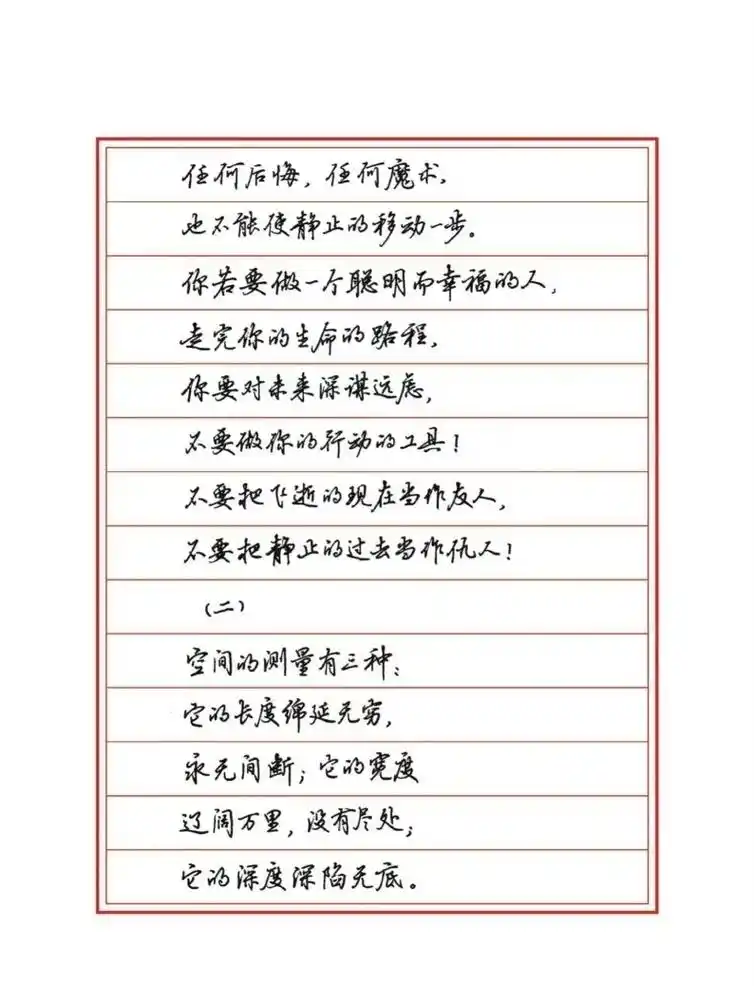 任何后悔，任何魔术，
也不能使静止的移动一步。
你若要做一个聪明而幸福的人，
走完你的生命的路程，
你要对未来深谋远虑，
不要做你的行动的工具！
不要把飞逝的现在当作友人，
不要把静止的过去当作仇人！
（二）
空间的测量有三种：
它的长度绵延无穷，
永无间断；它的宽度
辽阔万里，没有尽处；
它的深度深陷无底。